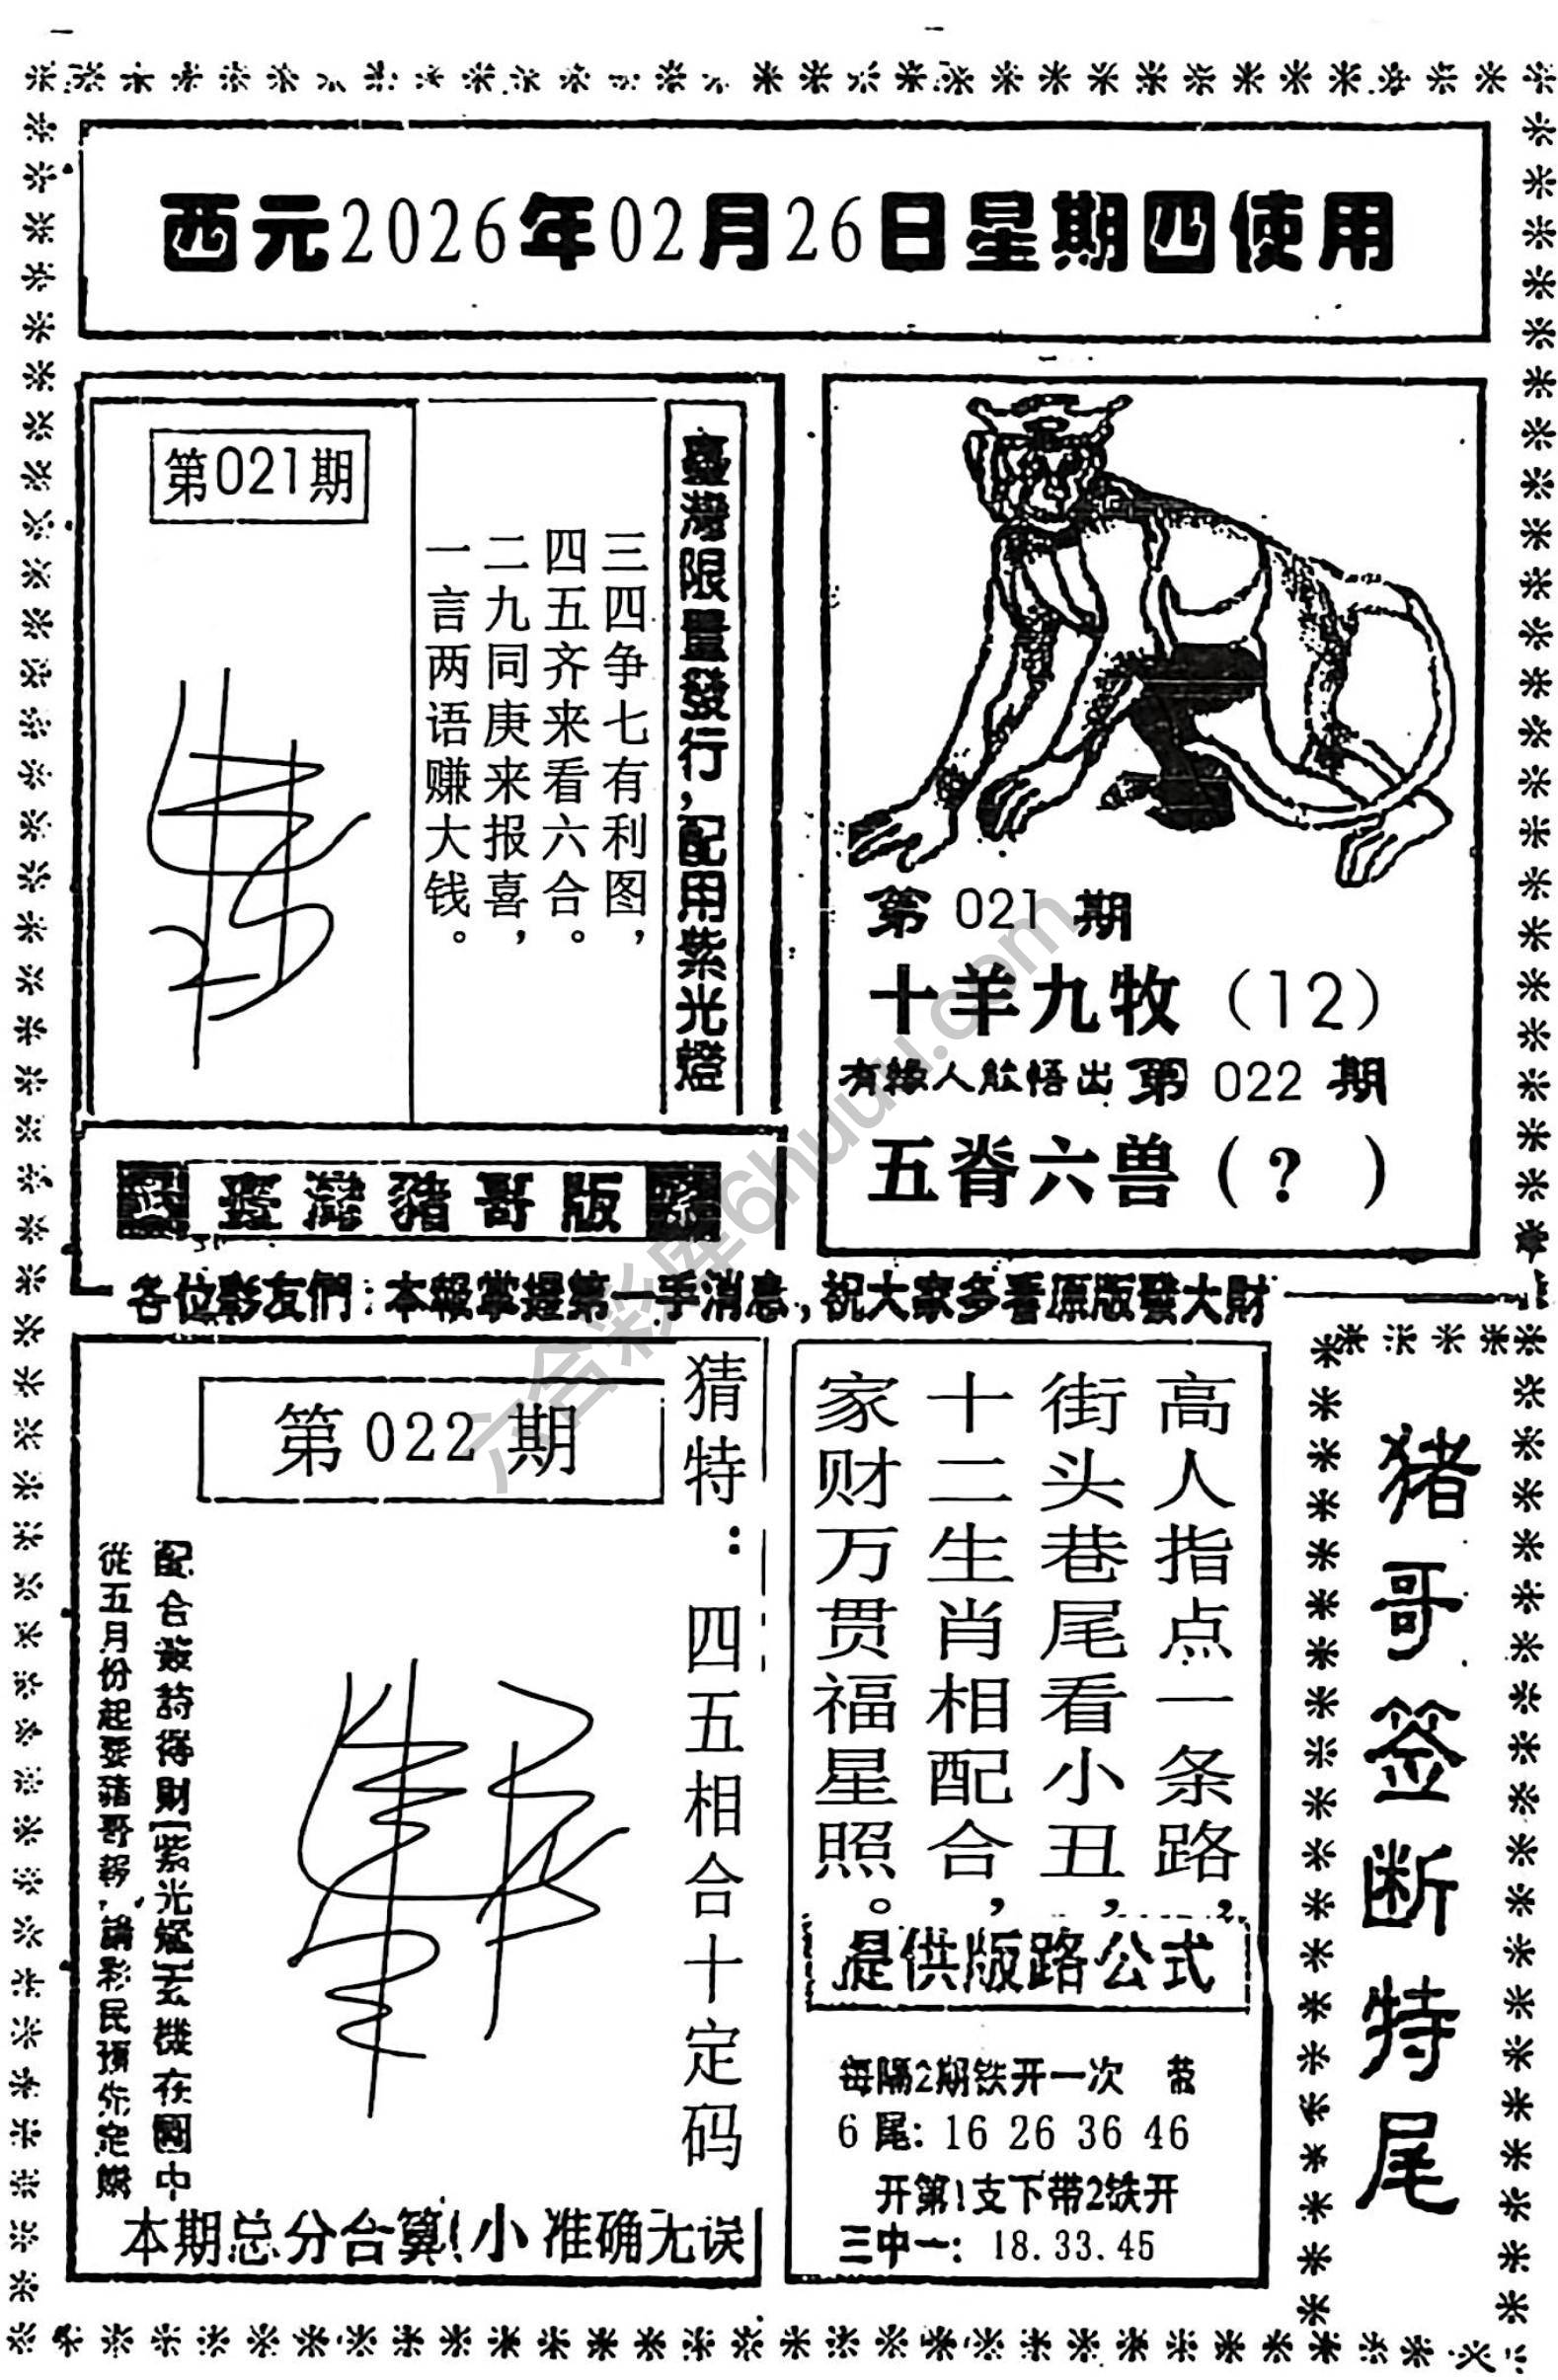 西元2026年02月26日星期四使用
第021期
臺灣限量發行,配用紫光燈
三四争七有利图，
四五齐来看六合。
二九同庚来报喜，
一言两语赚大钱。
臺灣豬哥版
第 021 期
十羊九牧（12）
有緣人能悟出 第 022 期
五脊六兽（? ）
各位彩友們:本報掌握第一手消息,祝大家多看原版發大財
第 022 期
猜特：四五相合十定码
配合簽詩得財[紫光燈]玄機在圖中
從五月份起要豬哥報,請彩民預先定購
本期总分合算!小 准确无误
高人指点一条路，
街头巷尾看小丑，
十二生肖相配合，
家财万贯福星照。
提供版路公式
每隔2期铁开一次 带
6尾: 16 26 36 46
开第1支下带2铁开
三中一: 18.33.45
猪哥签断特尾
六合彩库6huuu.com